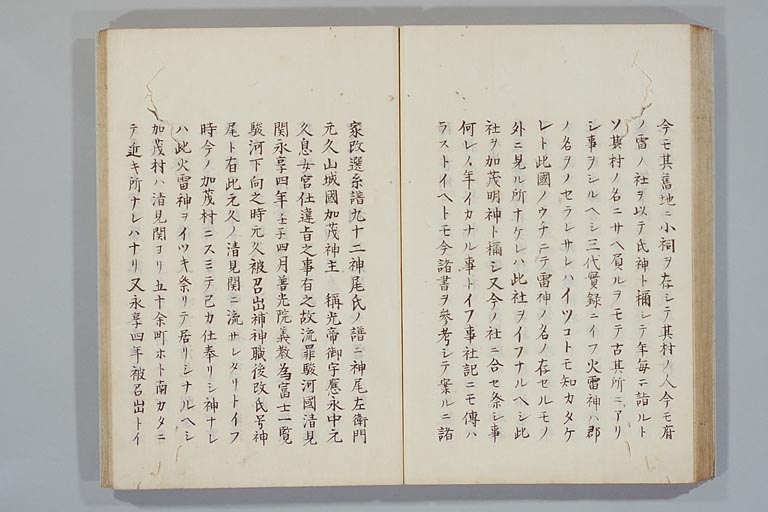 今モ其舊地ニ小祠ヲ存シテ其村ノ人今モ府
ノ雷ノ社ヲ以テ氏神ト稱シテ年毎ニ詣ルト
ソ其村ノ名ニサヘ負ルヲモテ古其所ニアリ
シ事ヲシルヘシ三代實録ニイフ火雷神ハ郡
ノ名ヲノセラレサレハイツコトモ知カタケ
レト此國ノウチニテ雷神ノ名ノ存セルモノ
外ニ見ル所ナケレハ此社ヲイフナルヘシ此
社ヲ加茂明神ト稱シ又今ノ社ニ合セ祭シ事
何レノ年イカナル事トイフ事社記ニモ傳ハ
ラストイヘトモ今諸書ヲ參考シテ案ルニ諸
家改選系譜九十二神尾氏ノ譜ニ神尾左衛門
元久山城國加茂神主 稱光帝御宇應永中元
久息女宮仕違旨之事有之故流罪駿河國清見
関永享四年壬子四月普光院義教為富士一覧
駿河下向之時元久被召出補神職後改氏号神
尾ト有此元久ノ清見関ニ流サレタリトイフ
時今ノ加茂村ニスミテ己カ仕奉リシ神ナレ
ハ此火雷神ヲイツキ祭リテ居リシナルヘシ
加茂村ハ清見関ヨリ五十余町ホト南カタニ
テ近キ所ナレハナリ又永享四年被召出トイ